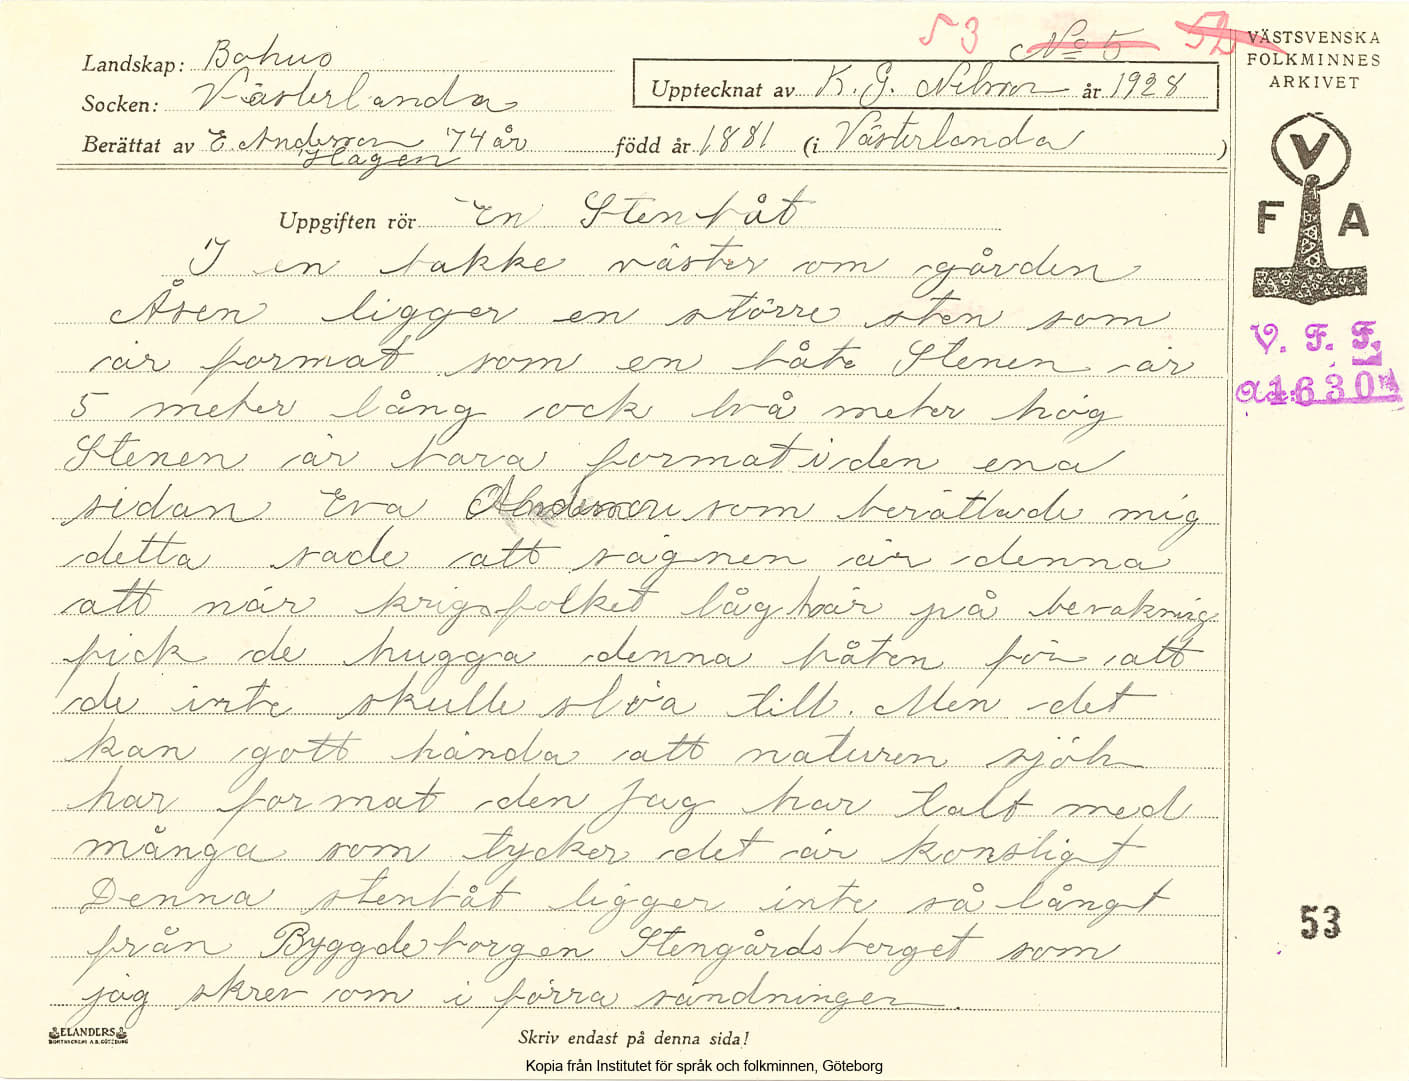 53 No 5 52
Landskap: Bohus
Socken: Västerlanda
Upptecknat av K. G. Nilsson år 1928
Berättat av E. Anderson 74 år född år 1881 (i Västerlanda )
Hagen
Uppgiften rör En Stenbåt
I en bakke väster om gården
Åsen ligger en större sten som
är format som en båt. Stenen är
5 meter lång ock två meter hög
Stenen är bara format i den ena
sidan Eva Anderson som berättade mig
detta sade att sägnen är denna
att när krigsfolket låg här på bevakning
fick de hugga denna båten för att
de inte skulle slöa till. Men det
kan gott hända att naturen sjöh
har format den Jag har talt med
många som tycker det är konstigt
Denna stenbåt ligger inte så långt
från Byggdeborgen Stengårdsberget som
jag skrev om i förra sändningen.
ELANDERS
BOKTRYCKERI A.B. GÖTEBORG
Skriv endast på denna sida!
Kopia från Institutet för språk och folkminnen, Göteborg
VÄSTSVENSKA
FOLKMINNES
ARKIVET
V
F A
V. F. F.
1630
53